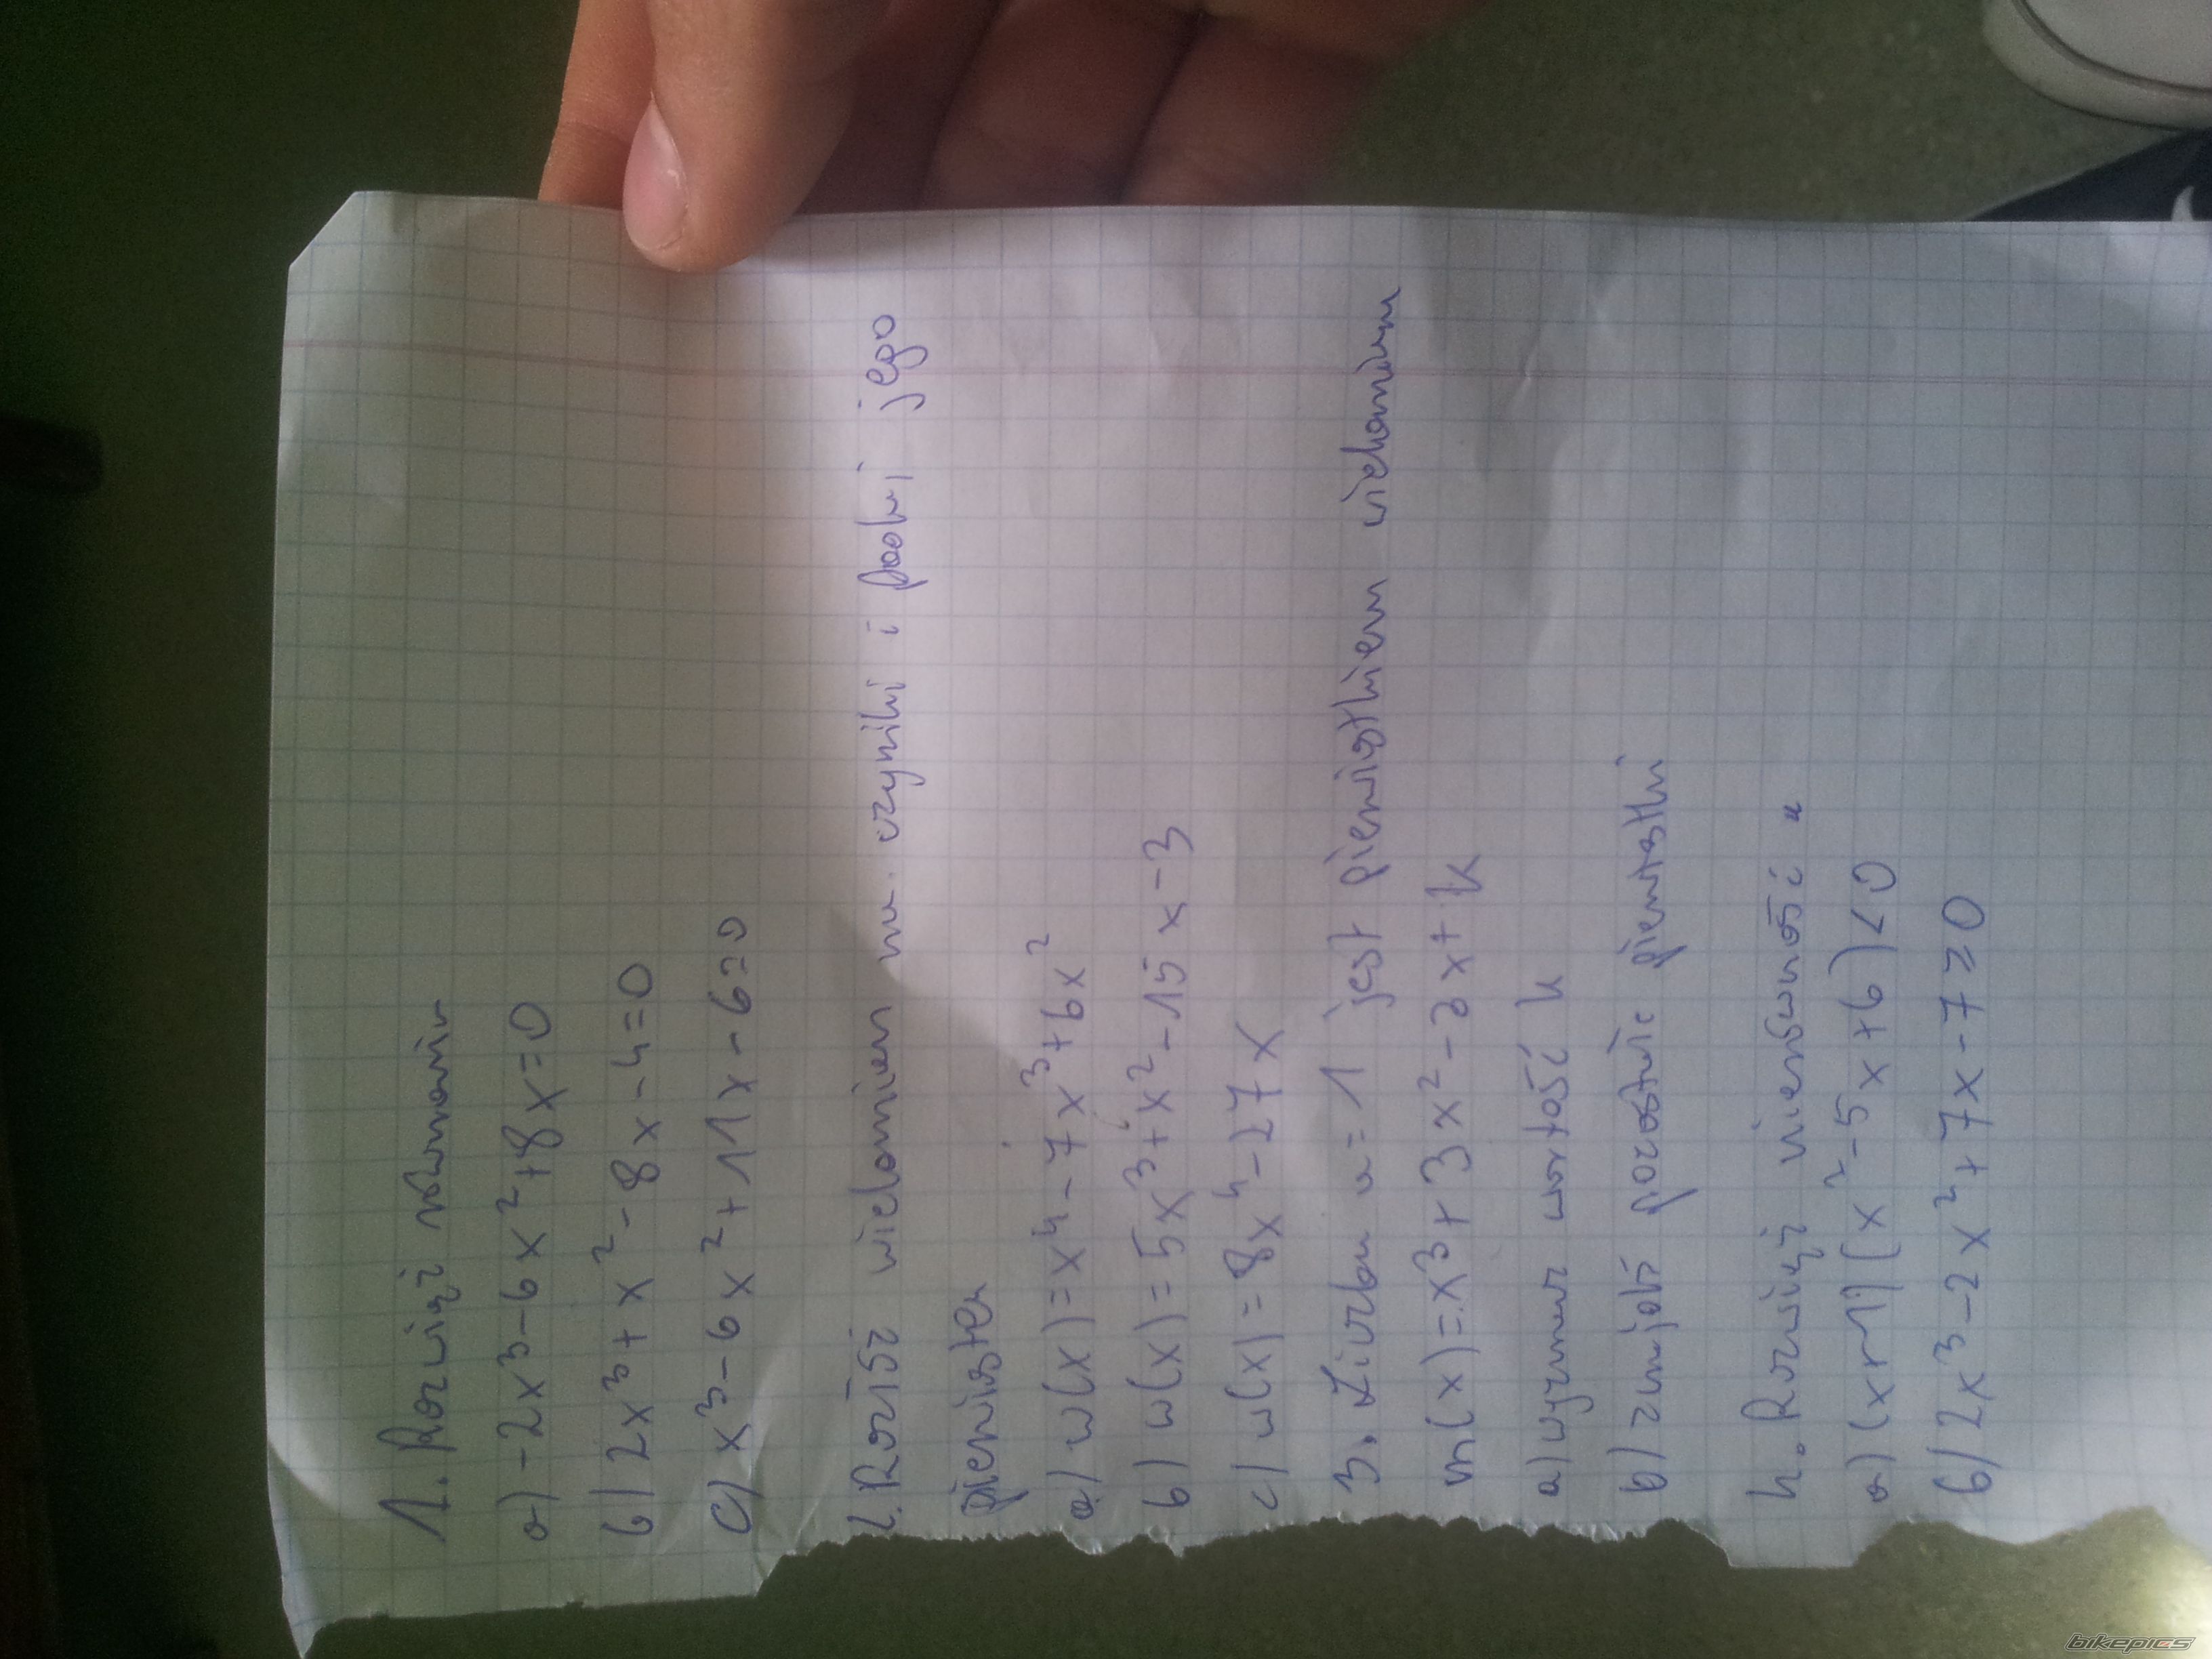 1. Rozwiąż równanie
a) -2x³-6x²+8x=0
b) 2x³+x²-8x-4=0
c) x³-6x²+11x-6=0
2. Rozłóż wielomian na czynniki i podaj jego
pierwiastki
a) w(x)=x⁴-7x³+6x²
b) w(x)=5x³+x²-15x-3
c) w(x)=8x⁴-27x
3. Liczba a=1 jest pierwiastkiem wielomianu
w(x)=x³+3x²-2x+k
a) wyznacz wartość k
b) znajdź pozostałe pierwiastki
4. Rozwiąż nierówność
a) (x+1)(x²-5x+6)<0
b) 2x³-2x²+7x-7≥0
bikepics